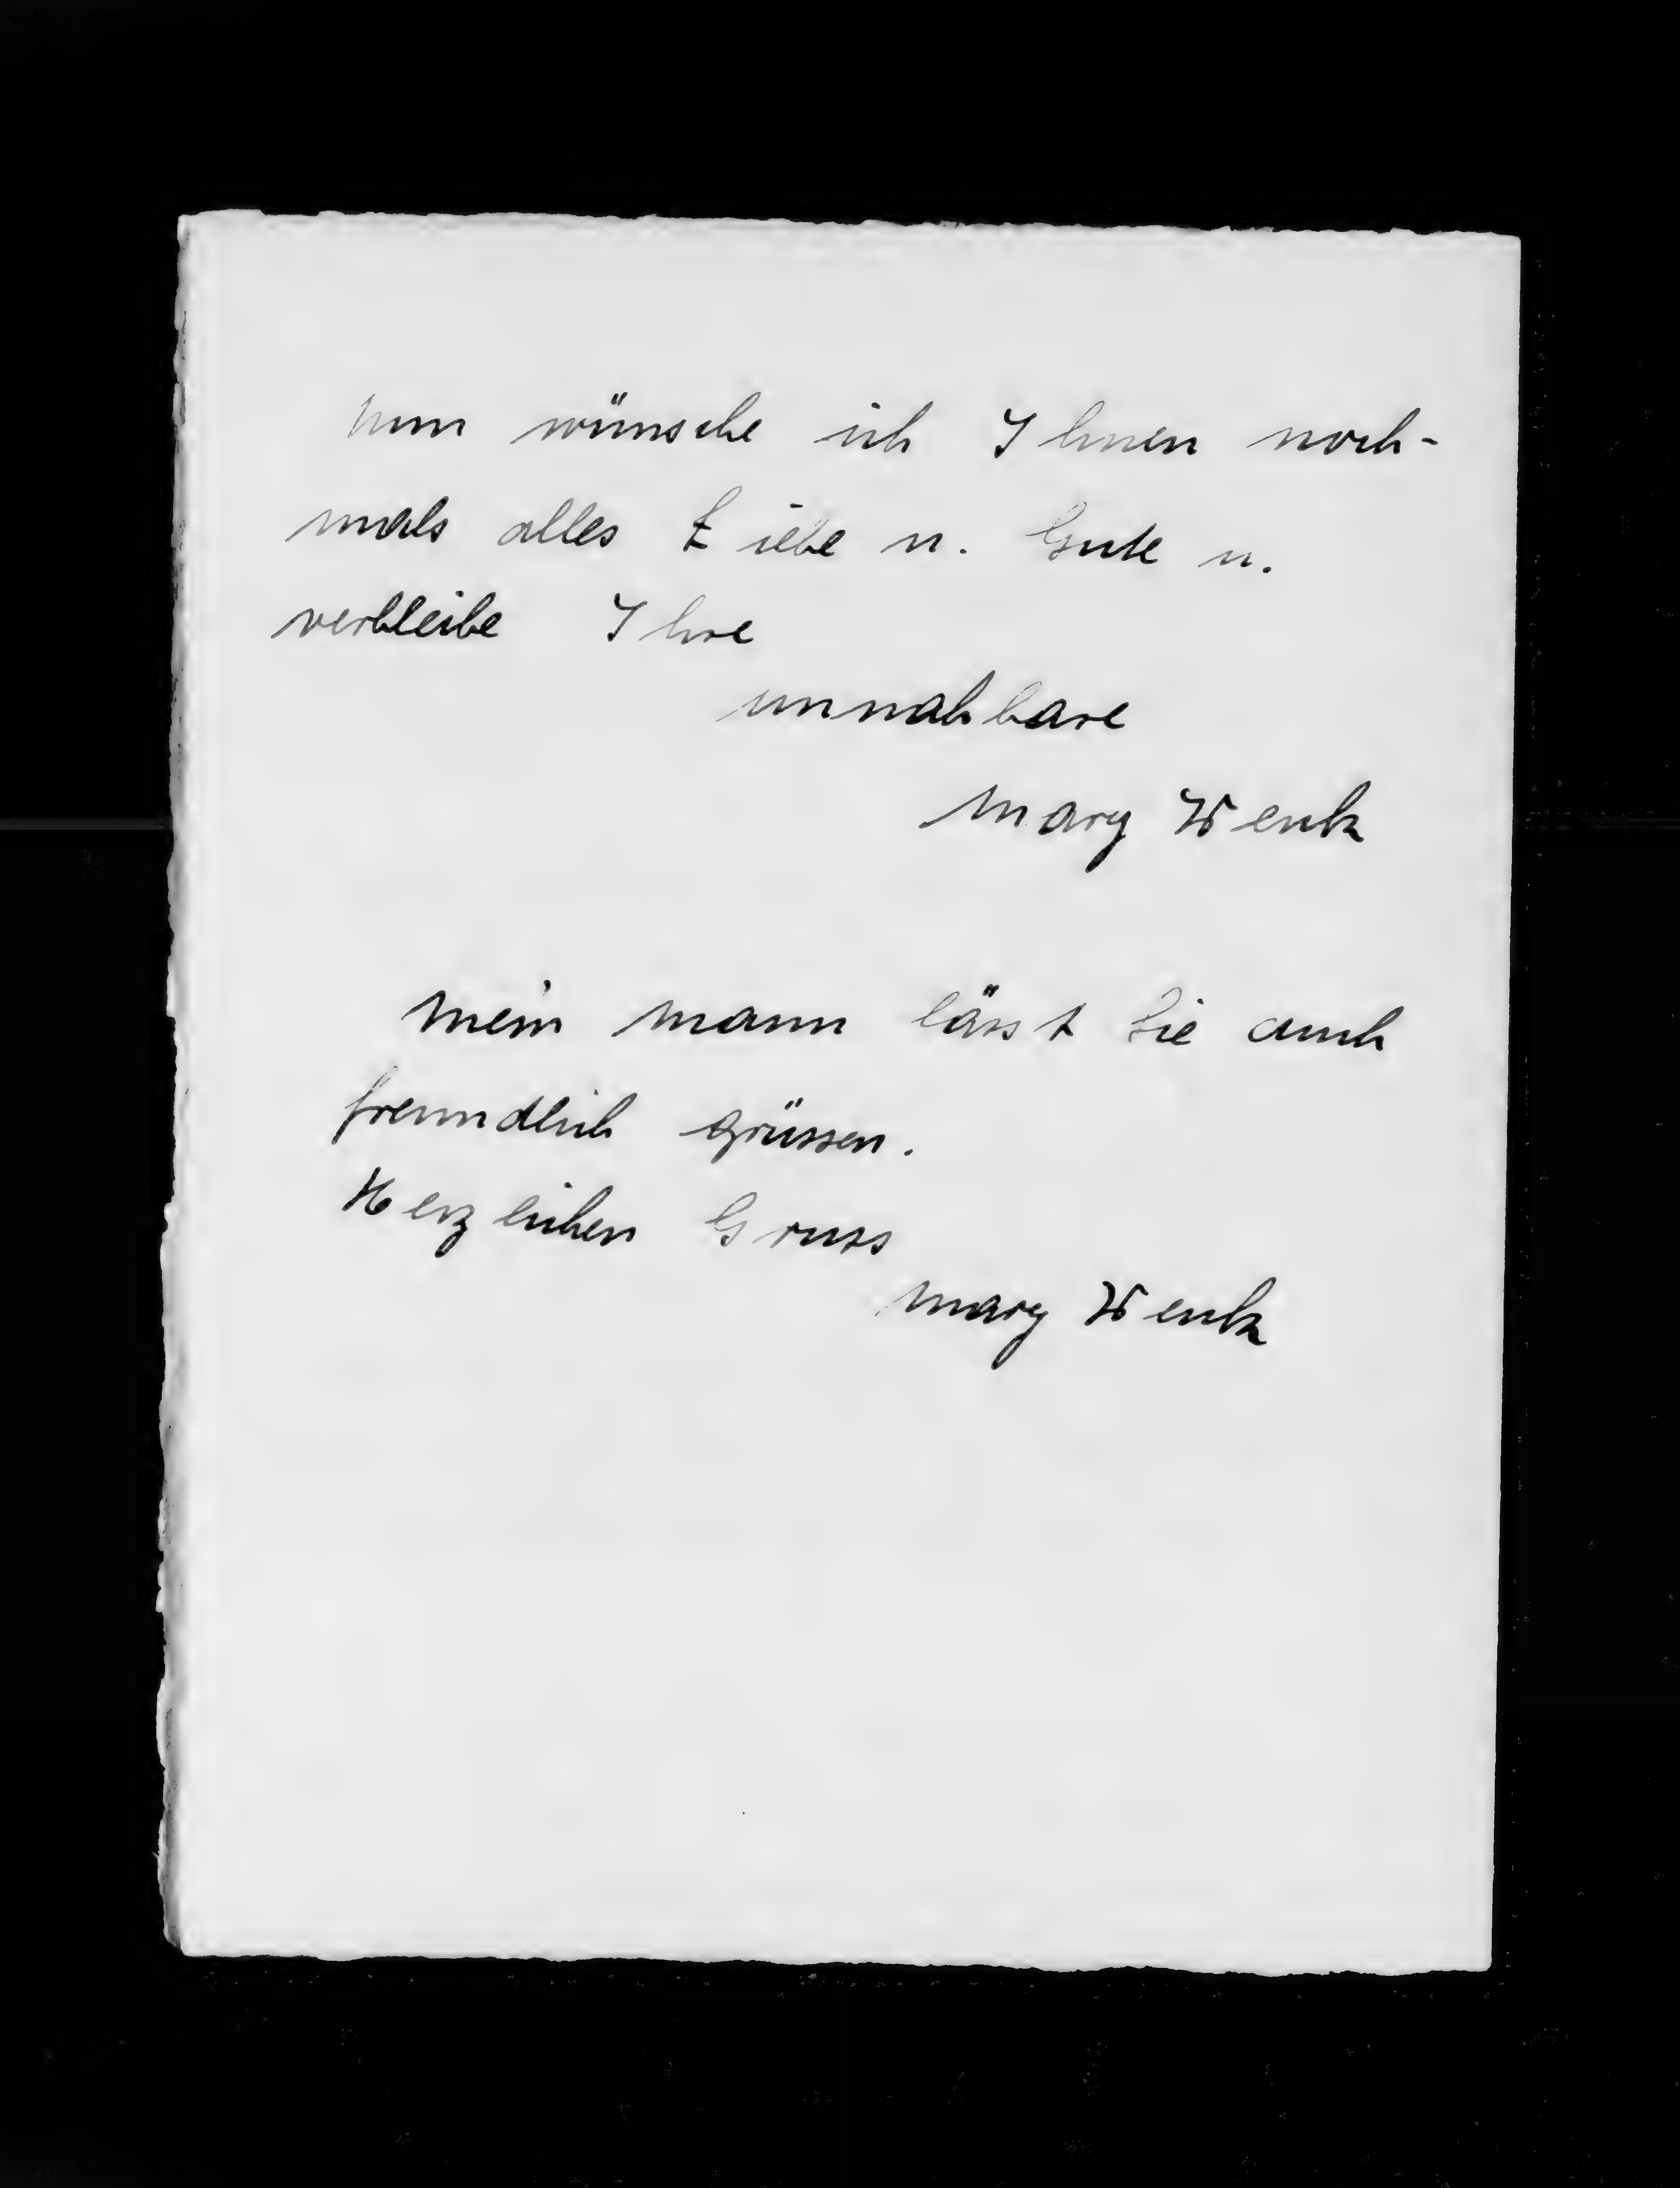 Nun wünsche ich Ihnen noch-
mals alles Liebe u. Gute u.
verbleibe Ihre
unnahbare
Mary Wenk
Mein Mann lässt Sie auch
freundlich grüssen.
Herzlichen Gruss
Mary Wenk